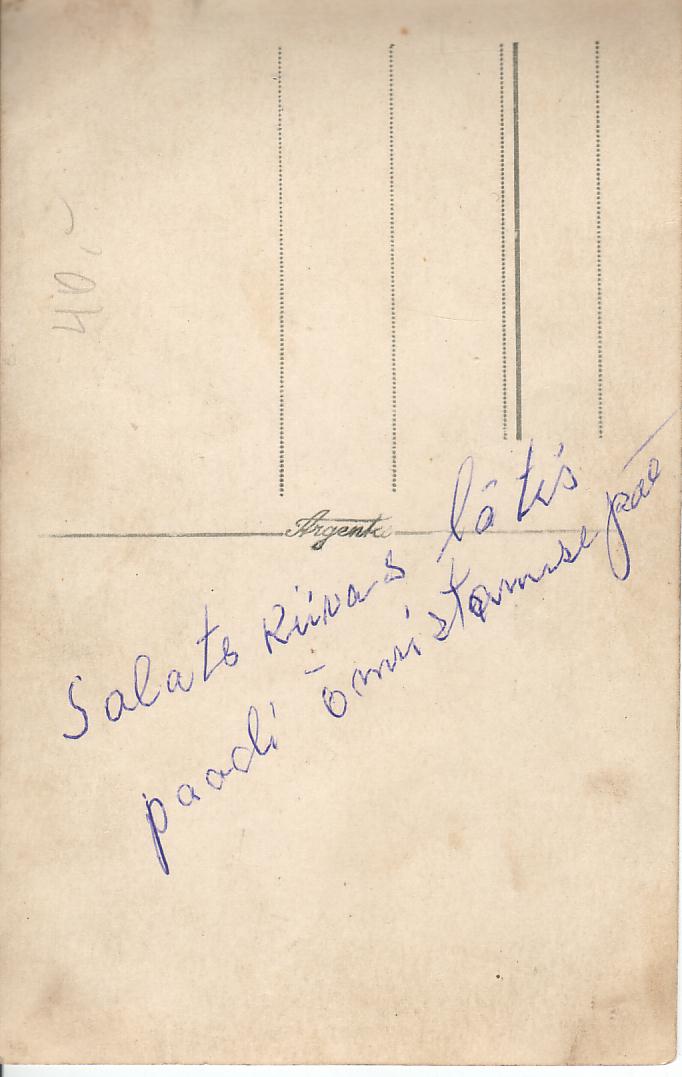 40.-
Argenta
Salats Küvas lätis
paadi õnnistamuse päe